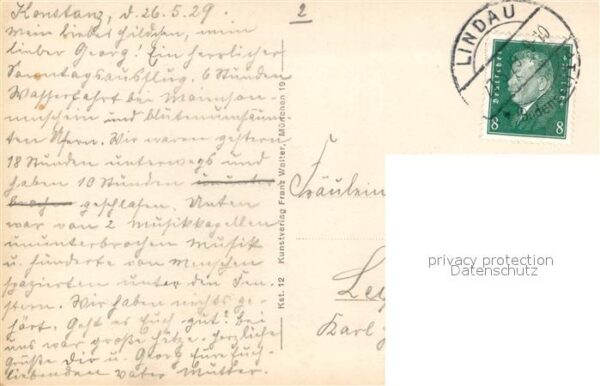 Konstanz, d. 26.5.29.
2
Mein liebes Hildchen, mein
lieber Georg! Ein herrlicher
Sonntagsausflug. 6 Stunden
Wasserfahrt bei Maiensonnenschein und blütenumsäumten Ufern. Wir waren gestern
18 Stunden unterwegs und
haben 10 Stunden
geschlafen. Unten
war von 2 Musikkapellen
ununterbrochen Musik
u. hunderte von Menschen
spazierten unter den Fenstern. Wir haben nichts gehört. Geht es Euch gut? Bei
uns war große Hitze. Herzliche
Grüße Dir u. Georg Eure Euch
liebenden Vater Mutter.
Kst. 12 Kunstverlag Franz Walter, München 19
LINDAU
Deutsches Reich
8 8
Fräulein
Karl-
privacy protection
Datenschutz